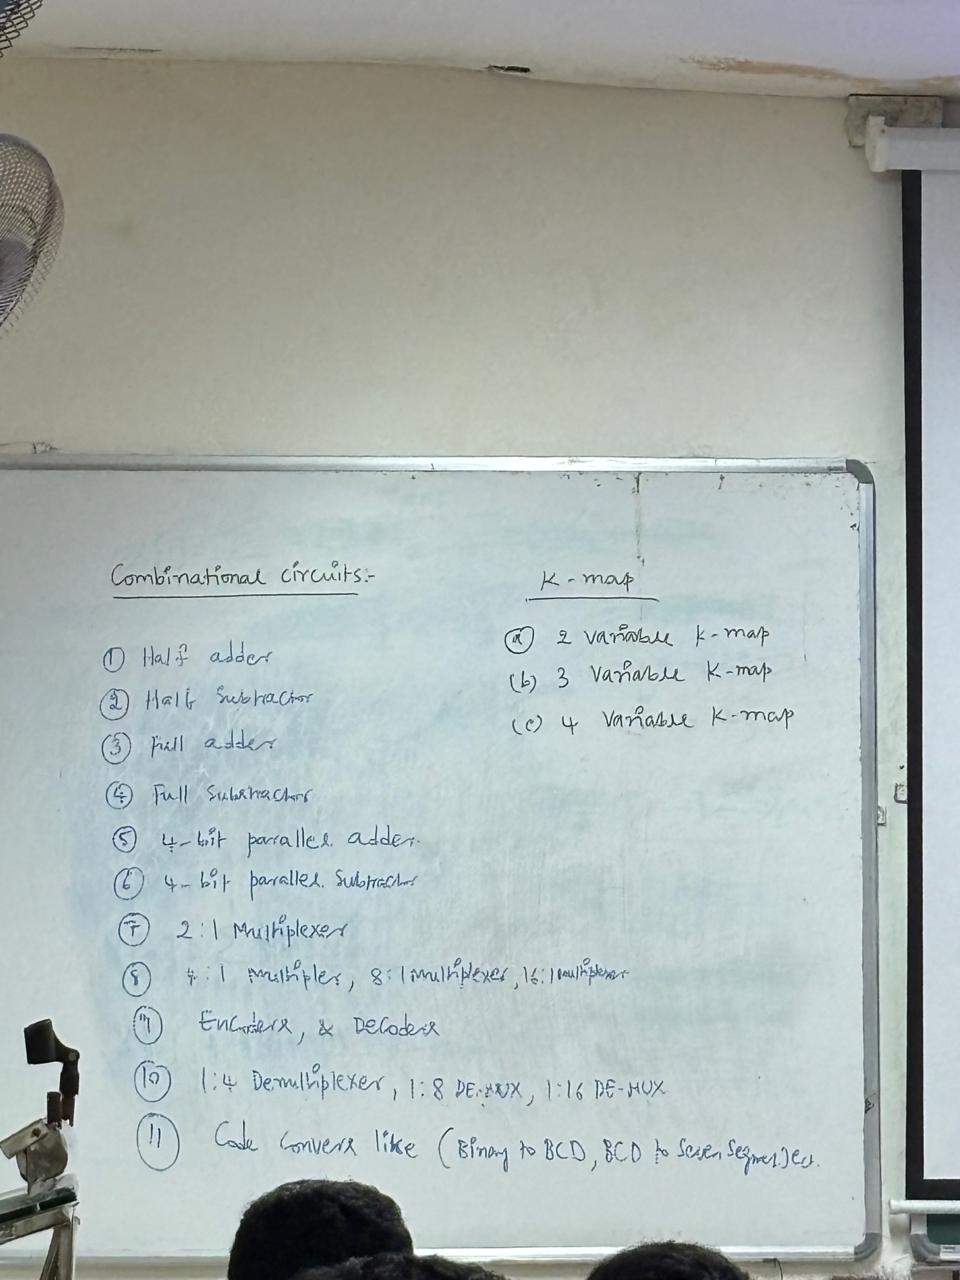 Combinational circuits:-
① Half adder
② Half Subtractor
③ Full adder
④ Full Subtractor
⑤ 4-bit parallel adder.
⑥ 4-bit parallel Subtractor
⑦ 2:1 Multiplexer
⑧ 4:1 Multipler, 8:1 multiplexer, 16:1 multiplexer
⑨ Encoders, & Decoders
⑩ 1:4 Demultiplexer, 1:8 DE-MUX, 1:16 DE-MUX
⑪ Code Convers like (Binary to BCD, BCD to Seven Segment) ect.
K-map
(a) 2 variable k-map
(b) 3 variable K-map
(c) 4 variable K-map